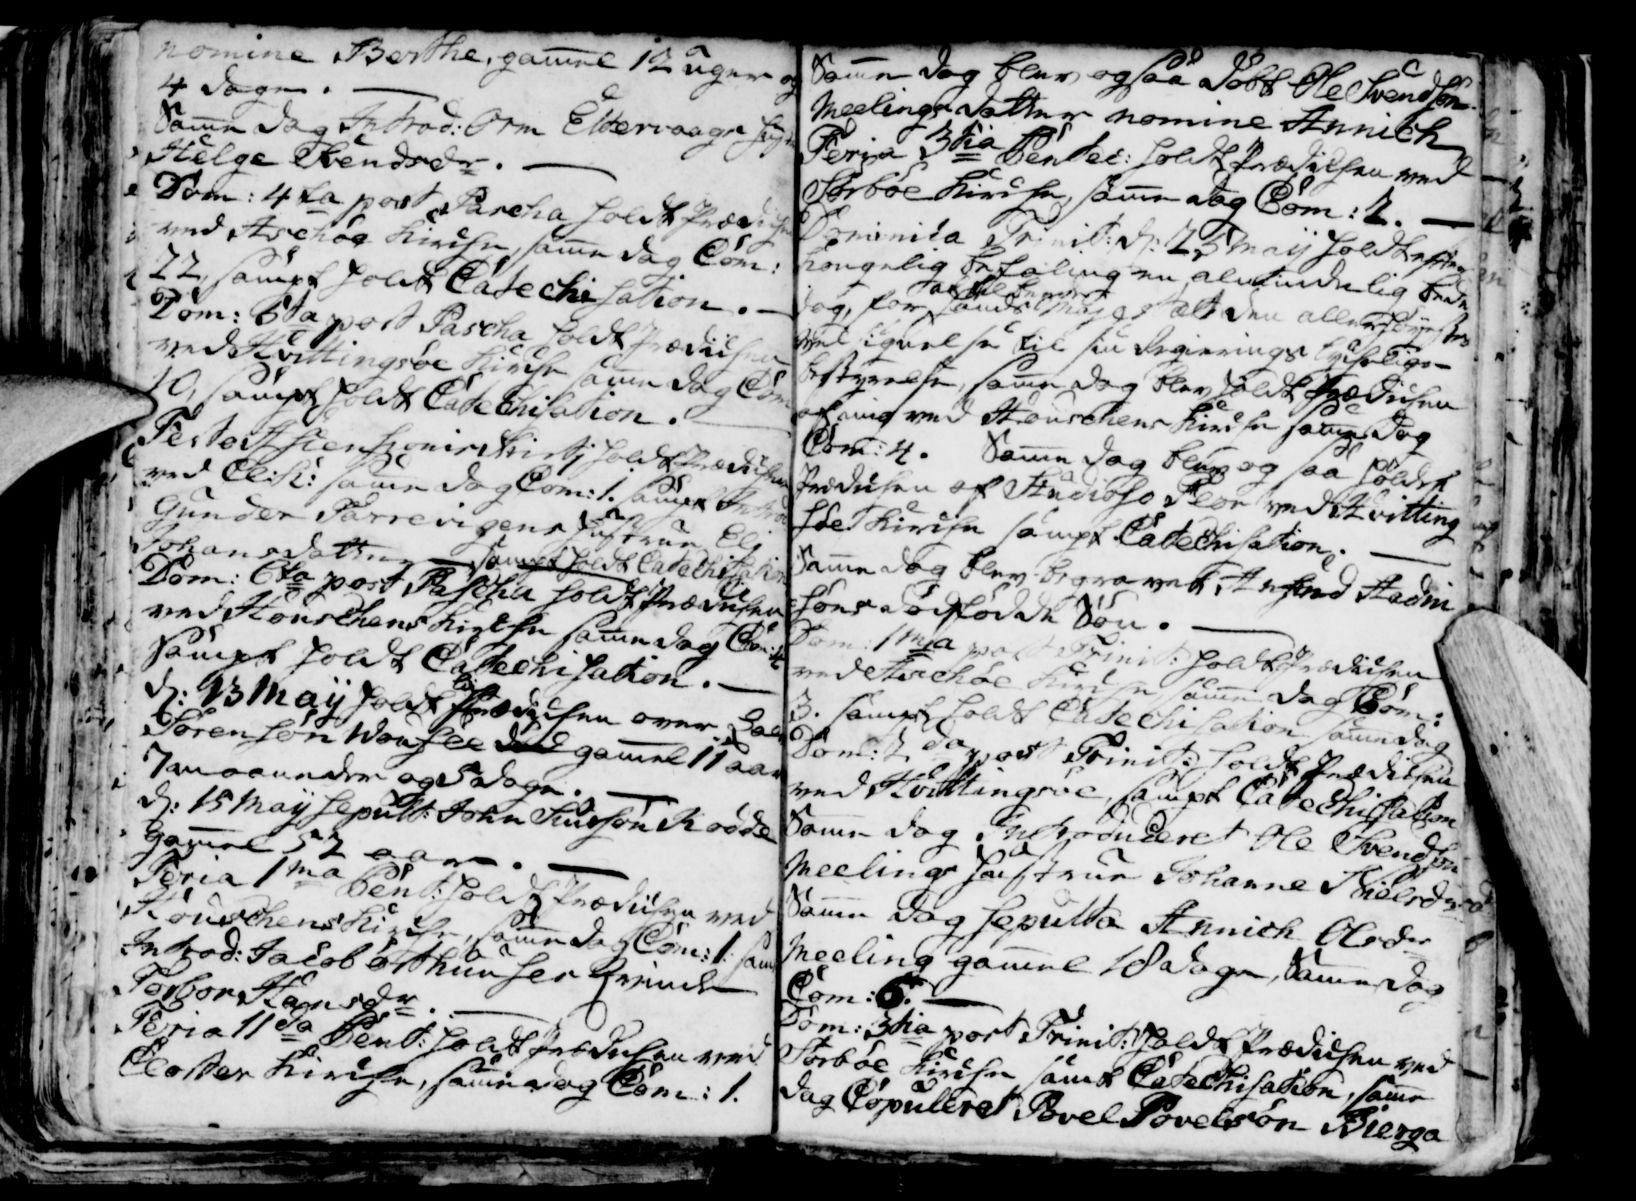 nomine Berthe, gamel 12 uger og
4 dage.
Same dag Introd: Orm Eltervaage
Helge Svendsdr.
Dom: 4ta post Pascha holdt Prædichen
ved Aschøe Kirche, same dag Com:
22, sampt holdt Catechisation.
Dom: 5ta post Pascha holdt Prædichen
ved Hvittingsøe Kirche same dag Com
10, sampt holdt Catechisation.
Festo Ascensionis Christi holdt Prædichen
ved Clost: same dag Com: 1. sampt Introd
Gunder Parrevigens hustrue Eli
Johansdatter sampt holdt Catechisation
Dom: 6ta post Pascha holdt Prædichen
ved Houschens Kirche same dag Com: 4
sampt holdt Catechisation.
d: 13 Maÿ holdt Liig Prædichen over
Sørensøn gamel 11 aar
7 maaneder og 5 dage.
d: 15 Maÿ sepult: John Knudsøn Rodde
gamel 52 aar.
Feria 1ma Pent: holdt Prædichen ved
Houschens Kirche, same dag Com: 1. sampt
Introd: Jacob Qvinde
Torbor Hansdr.
Feria 11da Pent: holdt Prædichen ved
Closter Kirche, same dag Com: 1.
Same dag blev ogsaa døbt Ole Svendsøn
Meelings datter nomine Annich
Feria 3tia Pentec: holdt Prædichen ved
Sørbøe Kirche, same dag Com: 2.
Dominica Trinit: d: 25 Maÿ holdt efter
kongelig befaling en almindelig bede
dag, for hands Majestæt den allerhøyestes
velsignelse til sin Regierings lychelige
bestyrelse, same dag blev holdt Prædichen
af mig ved Houschens Kirche same dag
Com: 4. Same dag blev og saa holdt
Prædichen af Studioso Fleor ved Hvitting
søe Kirche sampt Catechisation.
Same dag blev begravet Aufind Hadni
søns dødfødde Søn.
Dom: 1ma post Trinit: holdt Prædichen
ved Aschøe Kirche same dag Com:
3. sampt holdt Catechisation same dag
Dom: 2da post Trinit: holdt Prædichen
ved Hvittingsøe, sampt Catechisation
Same dag Introduceret Ole Svendsøn
Meelings hustrue Johanne Nielsdr
Same dag sepulta Annich Olsdr
Meeling gamel 18 dage, Same dag
Com: 6.
Dom: 3tia post Trinit: holdt Prædichen ved
Sørbøe Kirche sampt Catechisation, same
dag Copuleret Povel Povelsøn Bierga